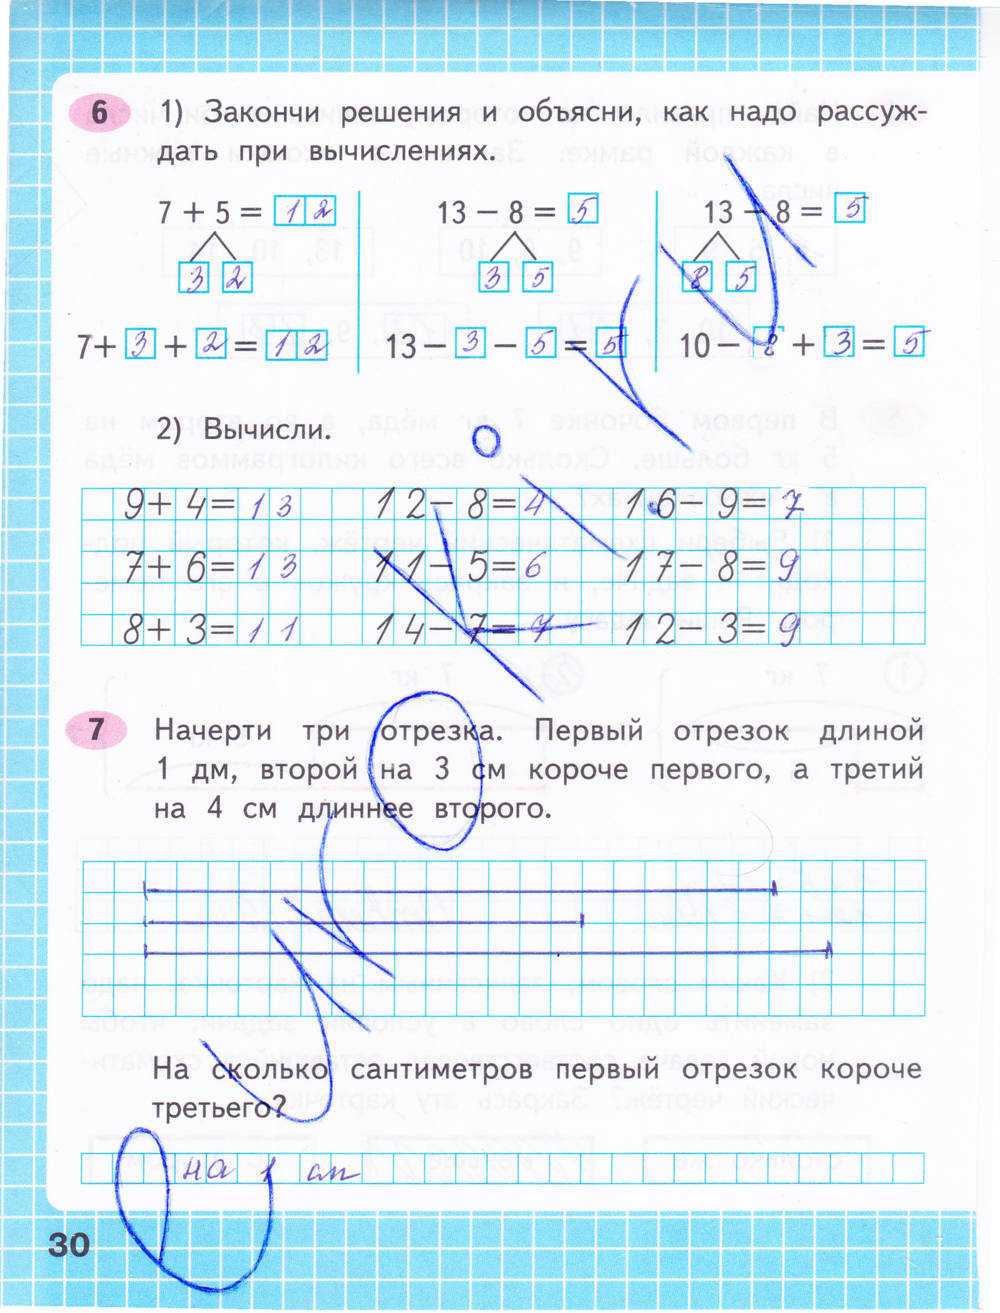 6 1) Закончи решения и объясни, как надо рассуж-
дать при вычислениях.
7 + 5 = 12 13 − 8 = 5 13 − 8 = 5
3 2 3 5 8 5
7+ 3 + 2 = 12 13 − 3 − 5 = 5 10 − 8 + 3 = 5
2) Вычисли.
9+ 4= 13 12− 8= 4 16− 9= 7
7+ 6= 13 11− 5= 6 17− 8= 9
8+ 3= 11 14− 7= 7 12− 3= 9
7 Начерти три отрезка. Первый отрезок длиной
1 дм, второй на 3 см короче первого, а третий
на 4 см длиннее второго.
На сколько сантиметров первый отрезок короче
третьего?
на 1 см
30